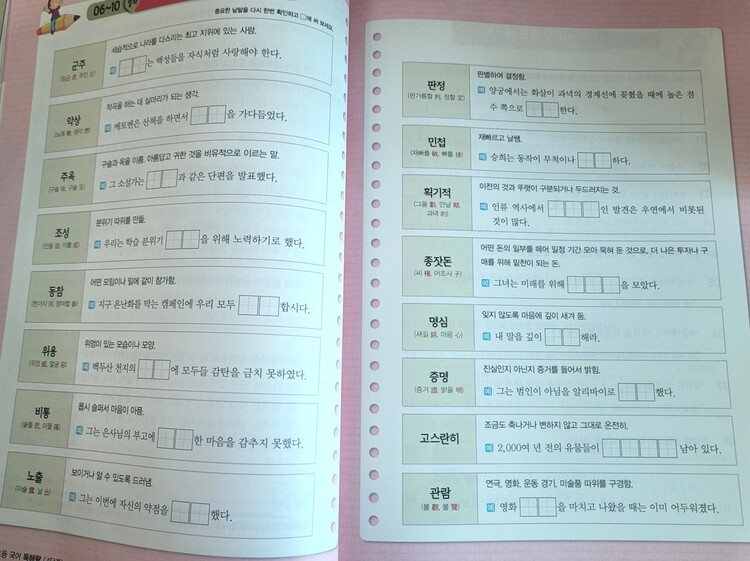 06~10
중요한 낱말을 다시 한번 확인하고 □에 써 보세요.
군주
세습적으로 나라를 다스리는 최고 지위에 있는 사람.
예 □□는 백성들을 자식처럼 사랑해야 한다.
악상
(노래 樂, 생각 想)
작곡을 하는 데 실마리가 되는 생각.
예 베토벤은 산책을 하면서 □□을 가다듬었다.
주옥
(구슬 珠, 구슬 玉)
구슬과 옥을 이름. 아름답고 귀한 것을 비유적으로 이르는 말.
예 그 소설가는 □□과 같은 단편을 발표했다.
조성
(만들 造, 이룰 成)
분위기 따위를 만듦.
예 우리는 학습 분위기 □□을 위해 노력하기로 했다.
동참
(한가지 同, 참여할 參)
어떤 모임이나 일에 같이 참가함.
예 지구 온난화를 막는 캠페인에 우리 모두 □□합시다.
위용
(위엄 威, 얼굴 容)
위엄이 있는 모습이나 모양.
예 백두산 천지의 □□에 모두들 감탄을 금치 못하였다.
비통
(슬플 悲, 아플 痛)
몹시 슬퍼서 마음이 아픔.
예 그는 은사님의 부고에 □□한 마음을 감추지 못했다.
노출
(이슬 露, 날 出)
보이거나 알 수 있도록 드러냄.
예 그는 이번에 자신의 약점을 □□했다.
국어 독해왕
판정
(판가름할 判, 정할 定)
판별하여 결정함.
예 양궁에서는 화살이 과녁의 경계선에 꽂혔을 때에 높은 점
수 쪽으로 □□한다.
민첩
(재빠를 敏, 빠를 捷)
재빠르고 날쌤.
예 승희는 동작이 무척이나 □□하다.
획기적
(그을 劃, 만날 期,
과녁 的)
이전의 것과 뚜렷이 구분되거나 두드러지는 것.
예 인류 역사에서 □□□인 발견은 우연에서 비롯된
것이 많다.
종잣돈
(씨 種, 어조사 子)
어떤 돈의 일부를 떼어 일정 기간 모아 묵혀 둔 것으로, 더 나은 투자나 구
매를 위해 밑천이 되는 돈.
예 그녀는 미래를 위해 □□□을 모았다.
명심
(새길 銘, 마음 心)
잊지 않도록 마음에 깊이 새겨 둠.
예 내 말을 깊이 □□해라.
증명
(증거 證, 밝을 明)
진실인지 아닌지 증거를 들어서 밝힘.
예 그는 범인이 아님을 알리바이로 □□했다.
고스란히
조금도 축나거나 변하지 않고 그대로 온전히.
예 2,000여 년 전의 유물들이 □□□□ 남아 있다.
관람
(볼 觀, 볼 覽)
연극, 영화, 운동 경기, 미술품 따위를 구경함.
예 영화 □□을 마치고 나왔을 때는 이미 어두워졌다.